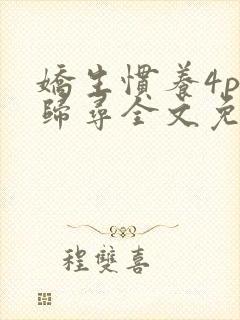 嬌生慣養4p
歸尋全文免
程雙喜